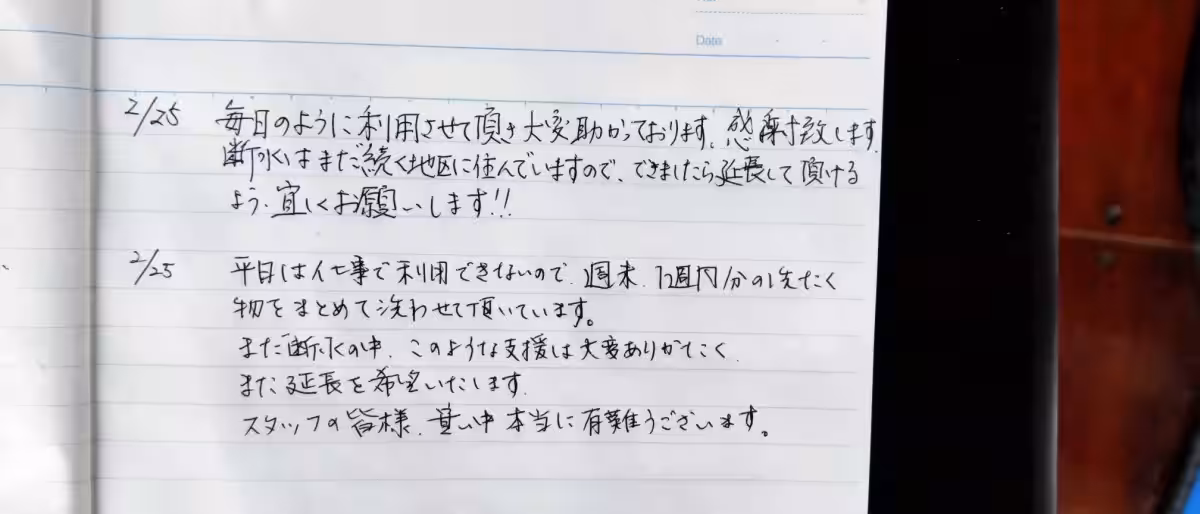 Date
2/25 毎日のように利用させて頂き大変助かっております。感謝致します。
断水はまだ続く地区に住んでいますので、できましたら延長して頂ける
よう、宜しくお願いします!!
2/25 平日は仕事で利用できないので、週末、1週間分の洗たく
物をまとめて洗わせて頂いています。
まだ断水の中、このような支援は大変ありがたく、
また延長を希望いたします。
スタッフの皆様、寒い中本当に有難うございます。